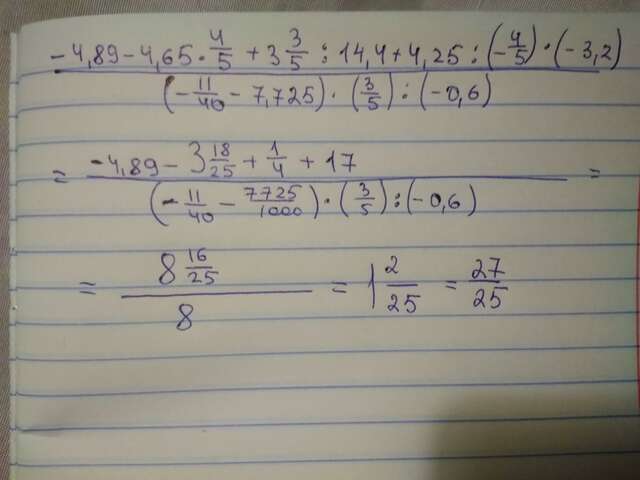 -4,89-4,65·4/5+3 3/5:14,4+4,25:(-4/5)·(-3,2)
(-11/40-7,725)·(3/5):(-0,6)
= -4,89-3 18/25+1/4+17 =
(-11/40-7725/1000)·(3/5):(-0,6)
= 8 16/25 / 8 = 1 2/25 = 27/25